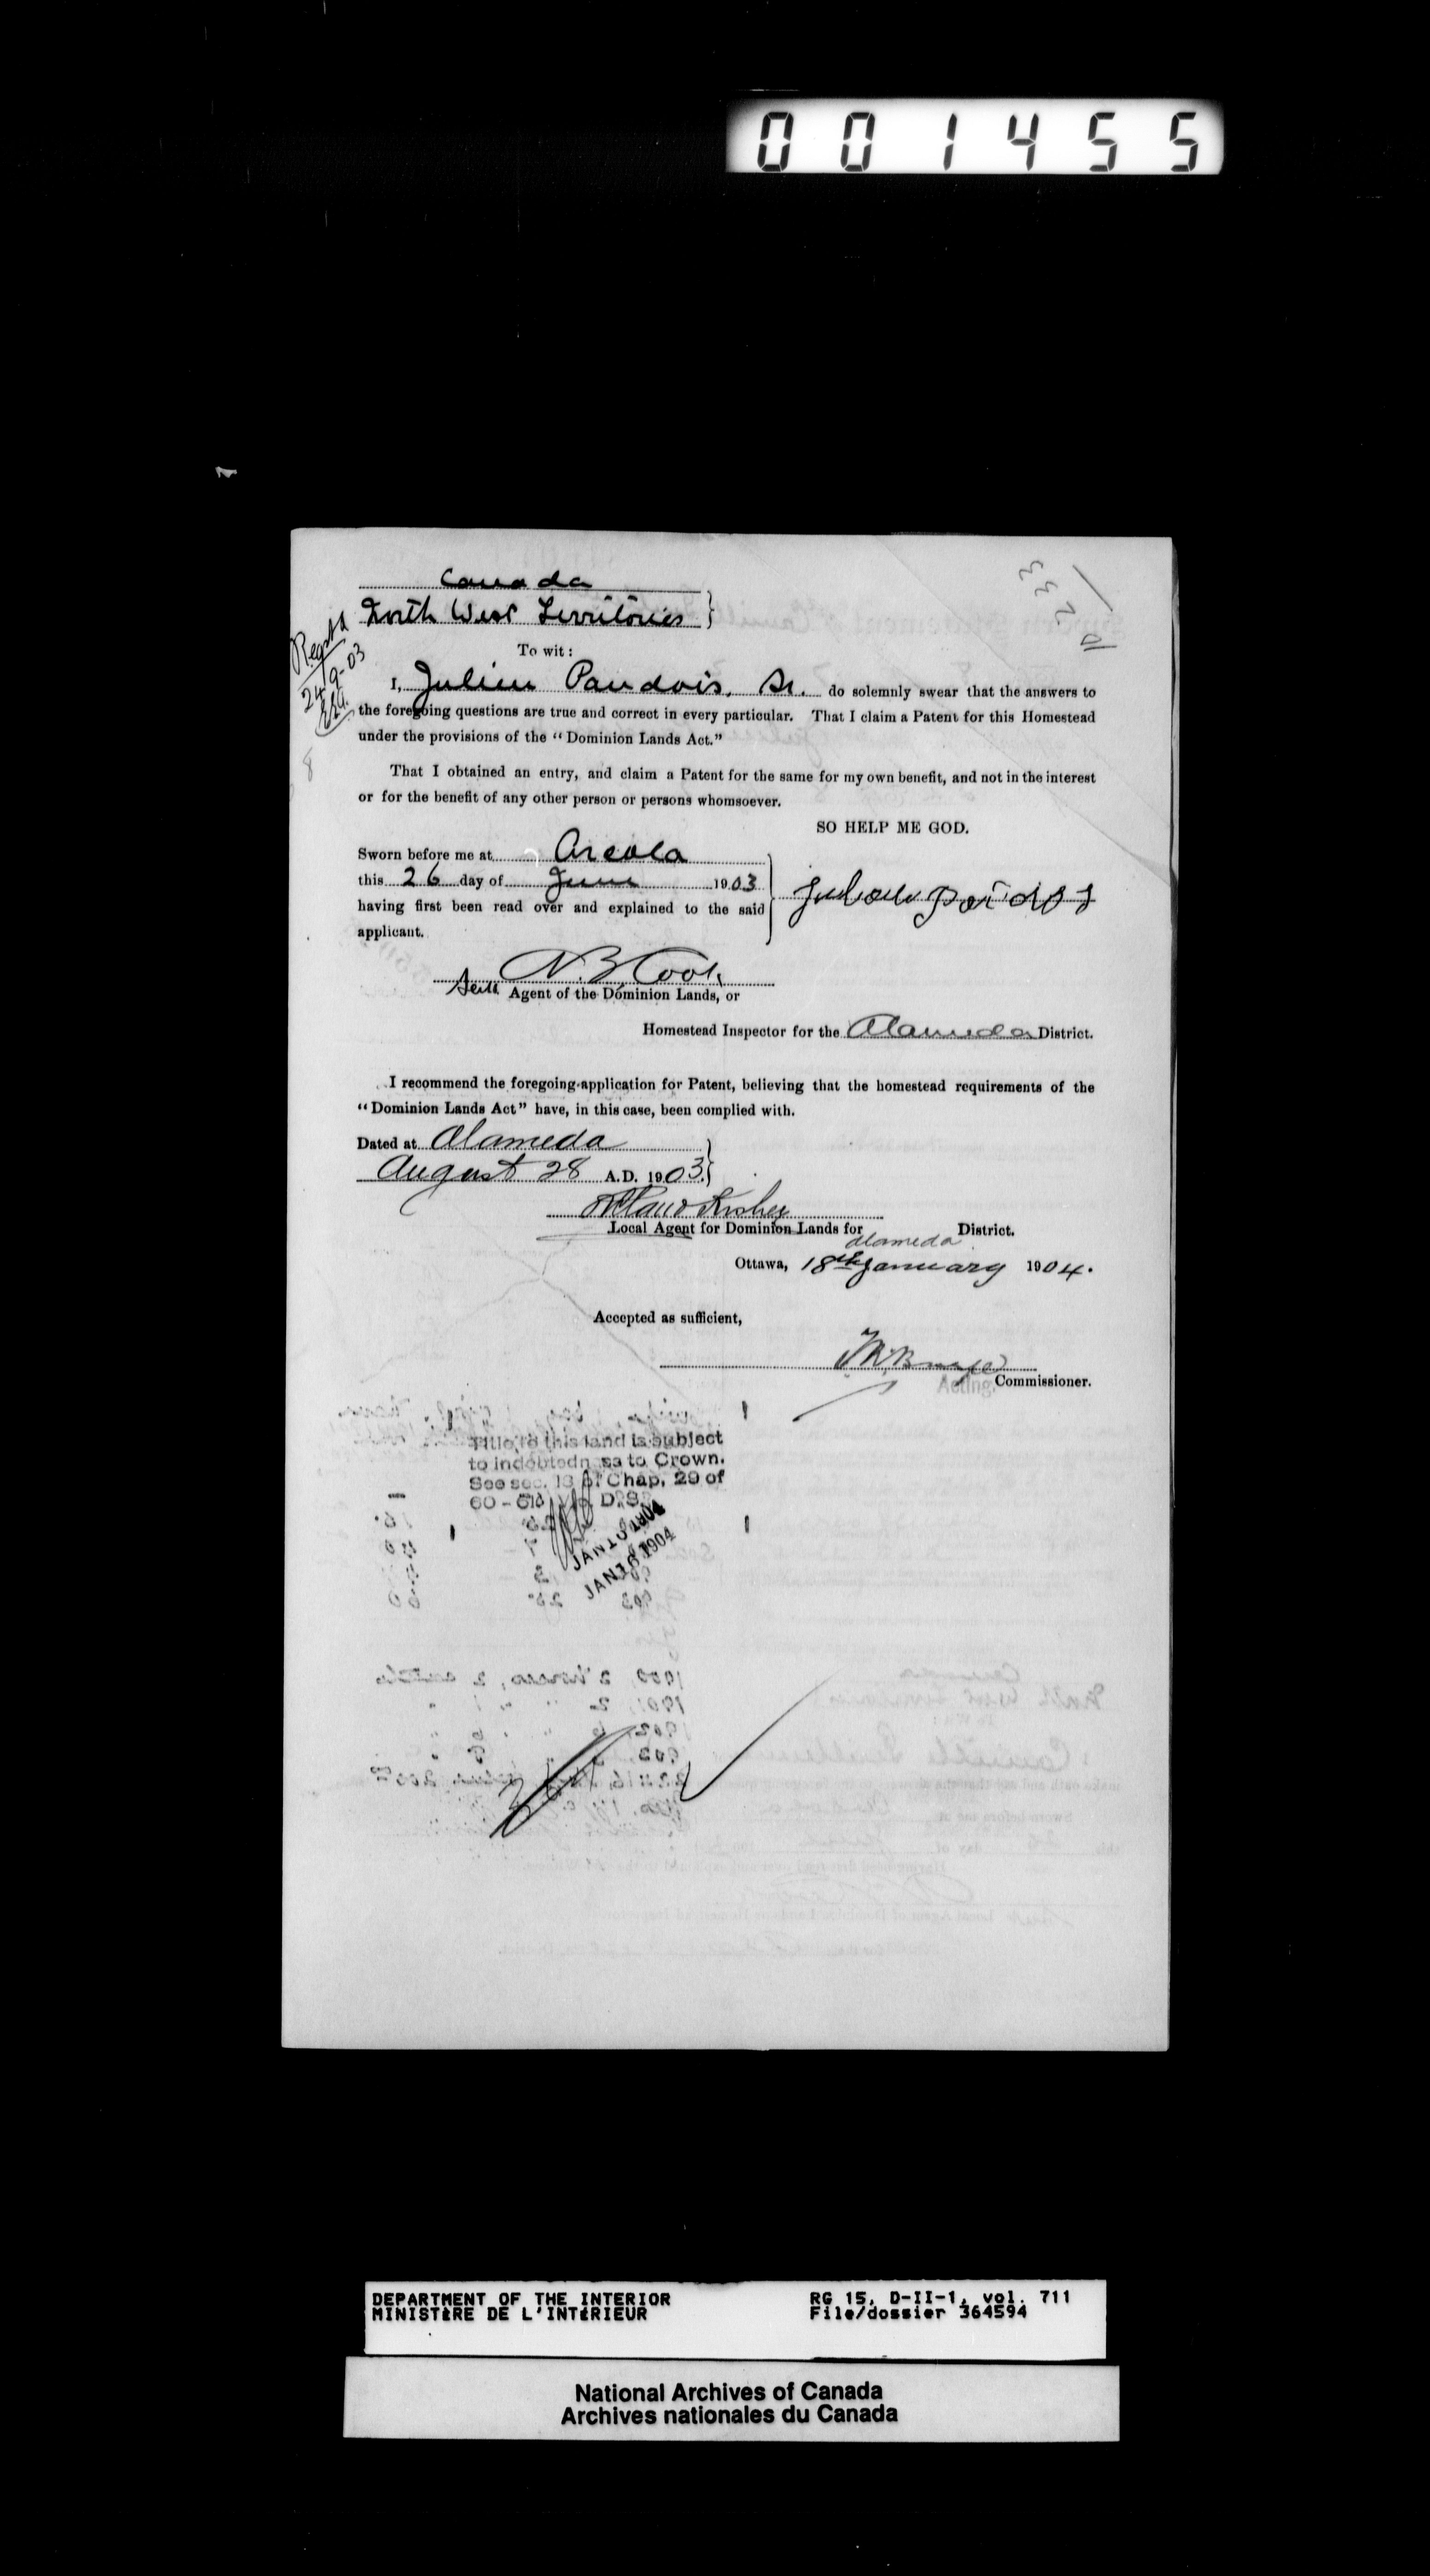 001455
Canada
North West Territories
Regst'd
24-9-03
To wit:
I, Julien Pandois. Sr. do solemnly swear that the answers to
the foregoing questions are true and correct in every particular. That I claim a Patent for this Homestead
under the provisions of the “Dominion Lands Act.”
That I obtained an entry, and claim a Patent for the same for my own benefit, and not in the interest
or for the benefit of any other person or persons whomsoever.
SO HELP ME GOD.
Sworn before me at Arcola
this 26 day of June 1903
having first been read over and explained to the said
applicant.
N. B. Cook
Agent of the Dominion Lands, or
Homestead Inspector for the Alameda District.
I recommend the foregoing application for Patent, believing that the homestead requirements of the
“Dominion Lands Act” have, in this case, been complied with.
Dated at Alameda
August 28 A.D. 1903.
Local Agent for Dominion Lands for Alameda District.
Ottawa, 18th January 1904.
Accepted as sufficient,
Acting Commissioner.
Title to this land is subject
to indebtedness to Crown.
See sec. 13 of Chap. 29 of
60-61 Vic. D.S.
JAN 1904
JAN 18 1904
DEPARTMENT OF THE INTERIOR
MINISTÈRE DE L'INTÉRIEUR
RG 15, D-II-1, vol. 711
File/dossier 364594
National Archives of Canada
Archives nationales du Canada